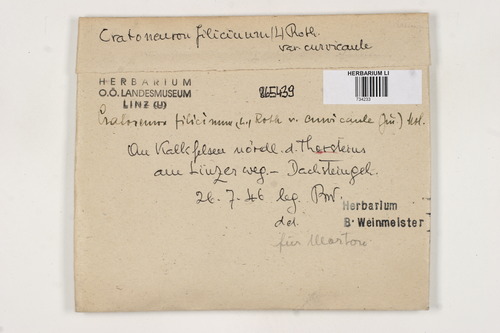 Cratoneuron filicinum (L) Roth.
var. curvicaule
HERBARIUM
O.Ö. LANDESMUSEUM
LINZ (U)
865439
HERBARIUM LI
734233
Cratoneuron filicinum (L.) Roth v. curvicaule (Jur)
An Kalkfelsen nördl. d. Thorsteins
am Linzer weg. - Dachsteingeb.
26. 7. 46 leg. BW.
det.
Herbarium
B. Weinmeister
für